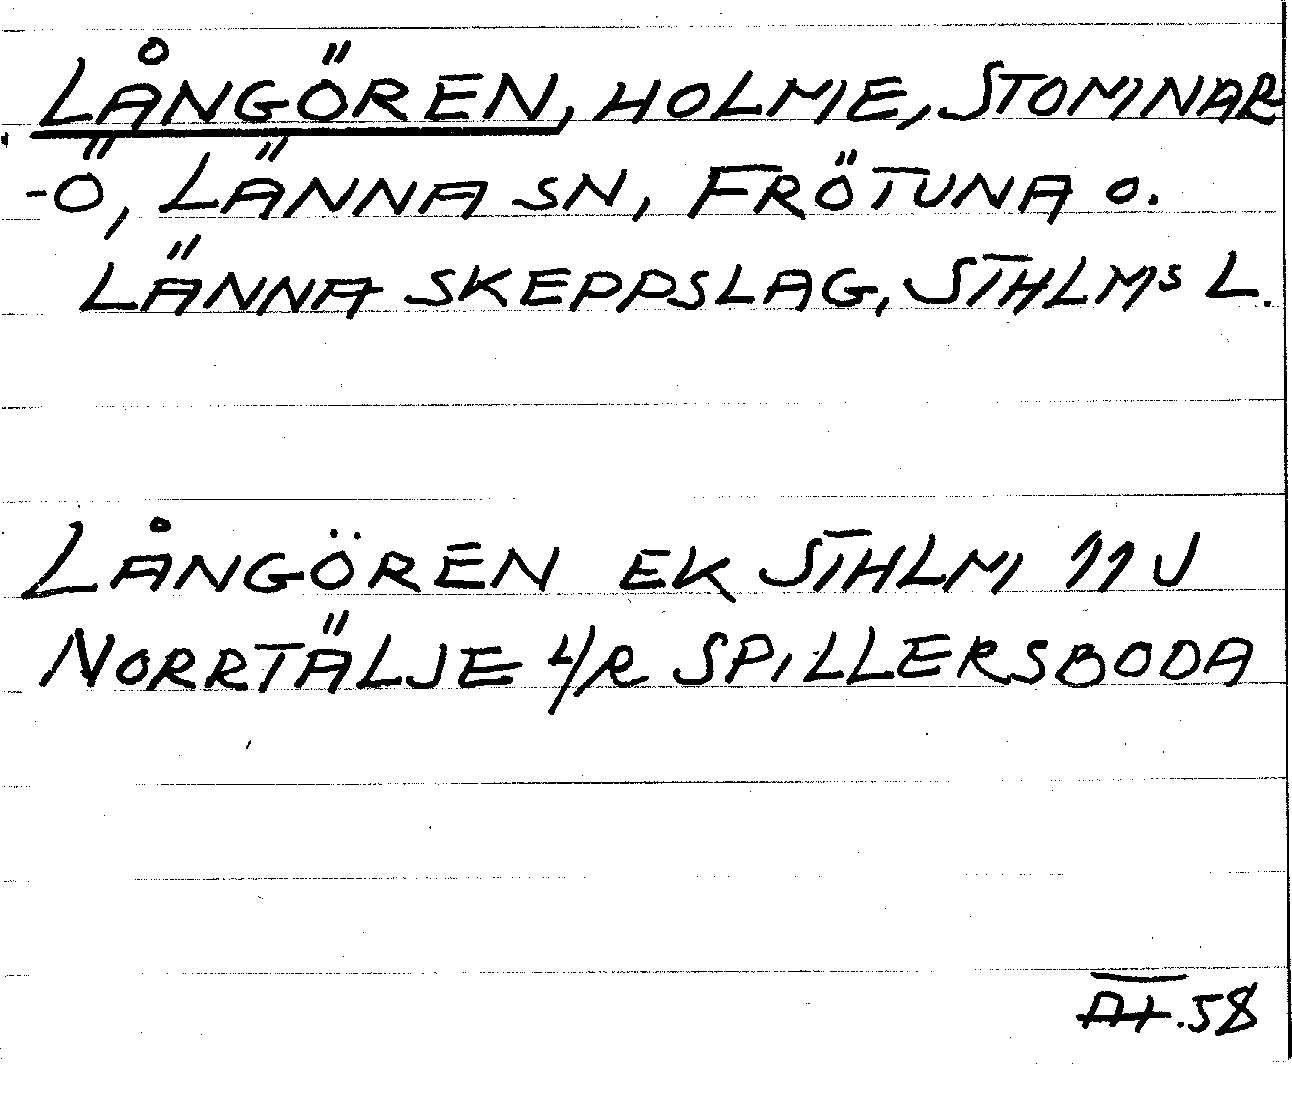 LÅNGÖREN, HOLME, STOMNAR
-Ö, LÄNNA SN, FRÖTUNA O.
LÄNNA SKEPPSLAG, STHLMS L.
LÅNGÖREN EK STHLM 11 J
NORRTÄLJE L/R SPILLERSBODA
AT.58